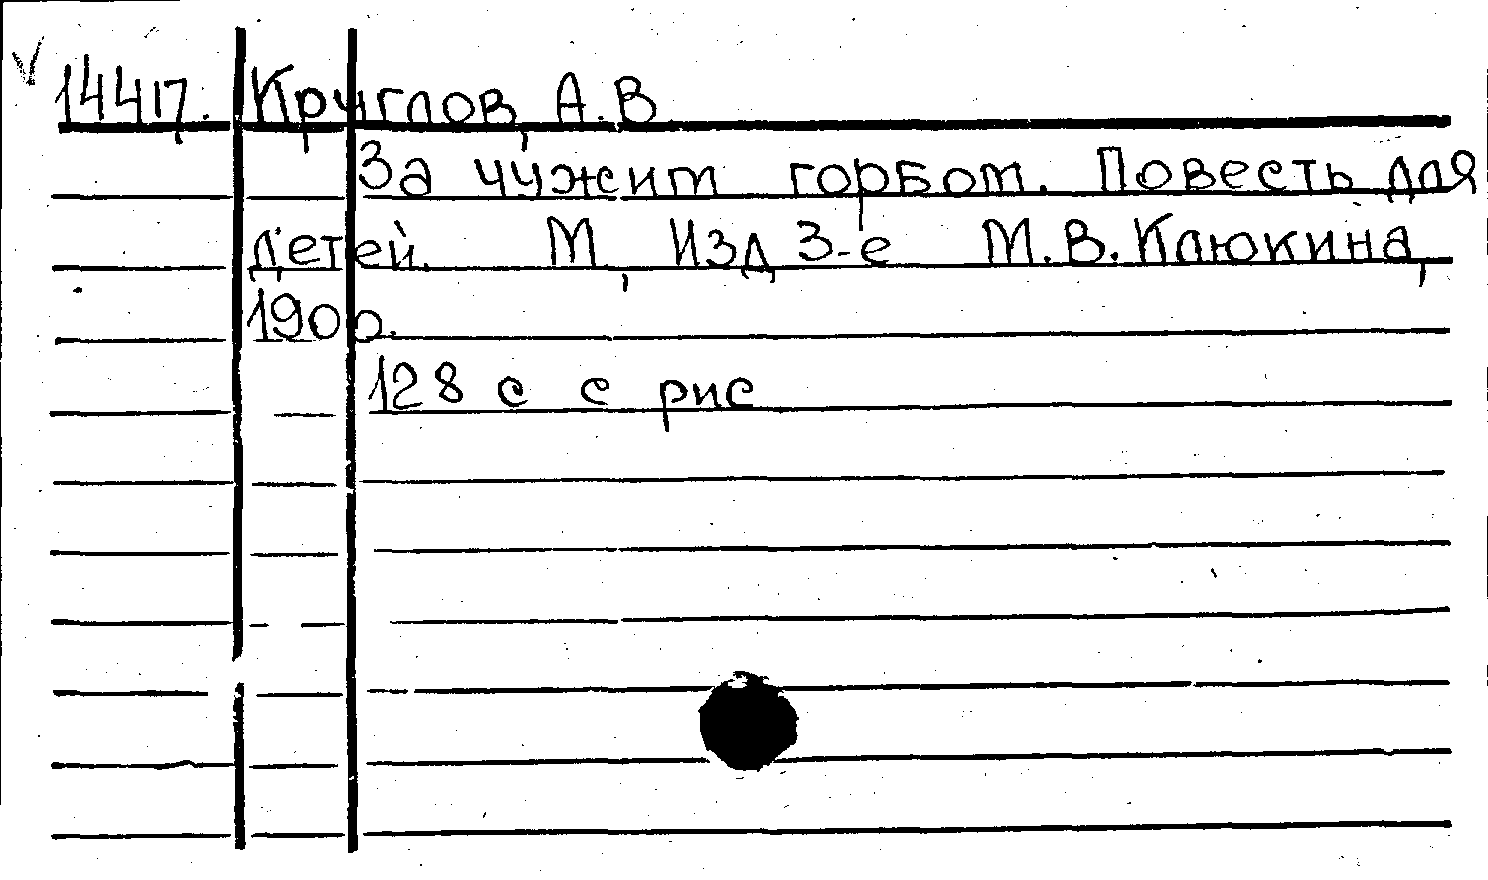 14417. Круглов, А.В.
За чужим горбом. Повесть для
детей. М, Изд 3-е М.В.Клюкина,
1900.
128 с с рис